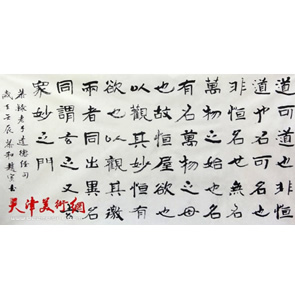 道可道也非恒
道也名可名也
非恒名也無名
萬物之始也
有名萬物之母
也故恒無欲也
以觀其妙恒有
欲也以觀其徼
兩者同出異名
同謂玄之又玄
眾妙之門
老子道德經句
歲次壬辰
天津美術網